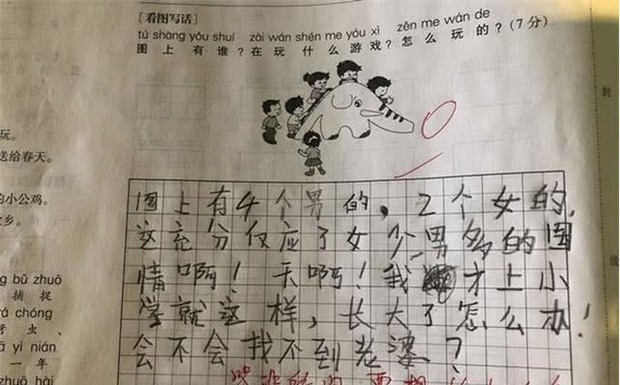 [看图写话]
tú shàng yǒu shuí zài wán shén me yóu xì zěn me wán de
图上有谁？在玩什么游戏？怎么玩的？(7分)
玩。
送给春天。
的小公鸡。
图上有4个男的，2个女的，
这充分仅应了女少男多的国
情啊！天啊！我才上小
学就这样，长大了怎么办！
会不会找不到老婆？
bǔ zhuō
捕捉
chóng
虫、
yì nián
一年
zhuó
封
线